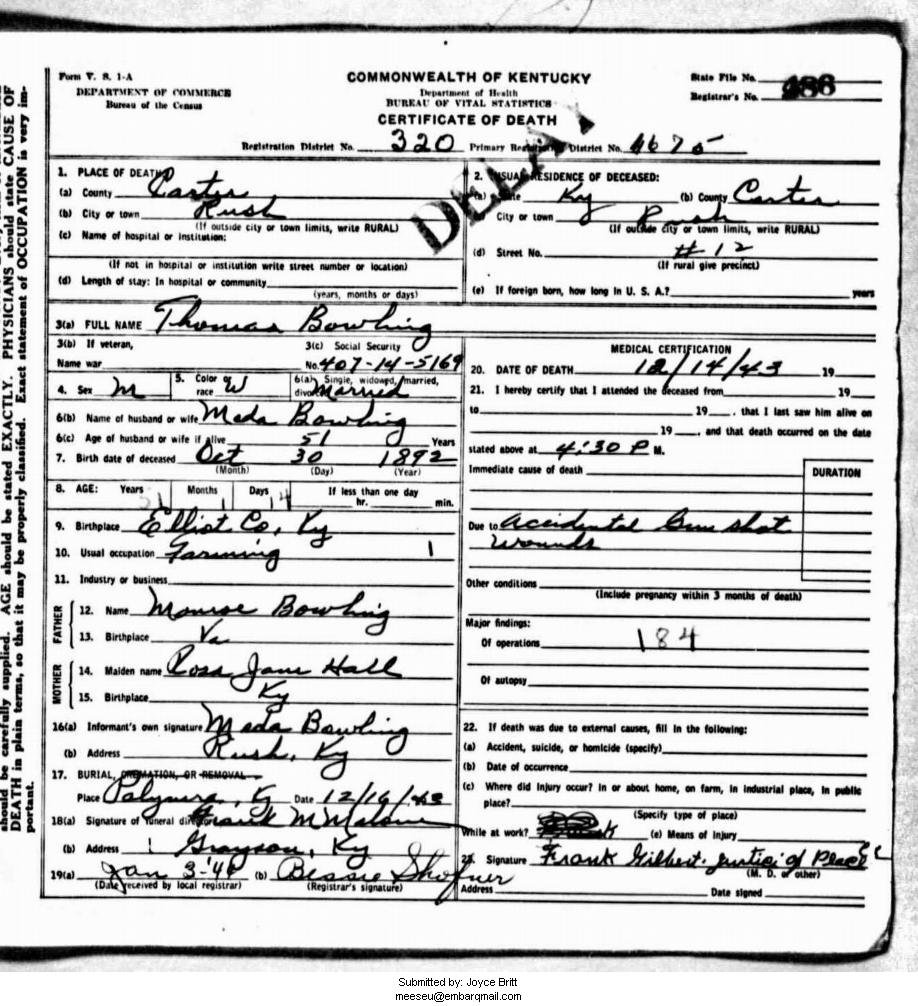 should be carefully supplied. AGE should be stated EXACTLY. PHYSICIANS should state CAUSE OF
DEATH in plain terms, so that it may be properly classified. Exact statement of OCCUPATION is very im-
portant.
Form V. S. 1-A
DEPARTMENT OF COMMERCE
Bureau of the Census
COMMONWEALTH OF KENTUCKY
Department of Health
BUREAU OF VITAL STATISTICS
CERTIFICATE OF DEATH
State File No.
Registrar's No. 486
DELAY
Registration District No. 320 Primary Registration District No. 4675
1. PLACE OF DEATH:
(a) County Carter
(b) City or town Rush
(If outside city or town limits, write RURAL)
(c) Name of hospital or institution:
(If not in hospital or institution write street number or location)
(d) Length of stay: In hospital or community
(years, months or days)
2. USUAL RESIDENCE OF DECEASED:
(a) State Ky (b) County Carter
City or town Rush
(If outside city or town limits, write RURAL)
(d) Street No. #12
(If rural give precinct)
(e) If foreign born, how long in U. S. A.? years
3(a) FULL NAME Thomas Bowling
3(b) If veteran,
Name war
3(c) Social Security
No. 407-14-5169
4. Sex M
5. Color or race W
6(a) Single, widowed, married, divorced Married
6(b) Name of husband or wife Meda Bowling
6(c) Age of husband or wife if alive 51 Years
7. Birth date of deceased Oct 30 1892
(Month) (Day) (Year)
8. AGE: Years 51 Months 1 Days 14 If less than one day
hr. min.
9. Birthplace Elliot Co, Ky
10. Usual occupation Farming 1
11. Industry or business
FATHER
12. Name Monroe Bowling
13. Birthplace Va
MOTHER
14. Maiden name Rosa Jane Hall
15. Birthplace Ky
16(a) Informant's own signature Meda Bowling
(b) Address Rush, Ky
17. BURIAL, CREMATION, OR REMOVAL
Place , Ky Date 12/16/43
18(a) Signature of funeral director Frank M Malone
(b) Address Grayson, Ky
19(a) Jan 3-44 (b) Bessie Shofner
(Date received by local registrar) (Registrar's signature)
MEDICAL CERTIFICATION
20. DATE OF DEATH 12/14/43 19
21. I hereby certify that I attended the deceased from 19
to 19 , that I last saw him alive on
19 , and that death occurred on the date
stated above at 4:30 P M.
Immediate cause of death
DURATION
Due to Accidental Gun shot
wounds
Other conditions
(Include pregnancy within 3 months of death)
Major findings:
Of operations 184
Of autopsy
22. If death was due to external causes, fill in the following:
(a) Accident, suicide, or homicide (specify)
(b) Date of occurrence
(c) Where did injury occur? In or about home, on farm, in industrial place, in public
place?
(Specify type of place)
While at work? (e) Means of Injury
23. Signature Frank Gilbert. Justice of Peace
(M. D. or other)
Address Date signed
Submitted by: Joyce Britt
meeseu@embarqmail.com